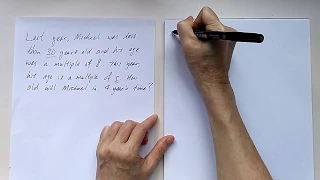 Last year, Michael was less
than 30 years old and his age
was a multiple of 8. This year,
his age is a multiple of 5. How
old will Michael in 4 year's time?